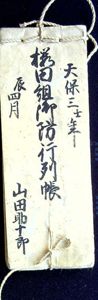 天保三壬年
櫻田組御防行列帳
辰四月
山田助十郎